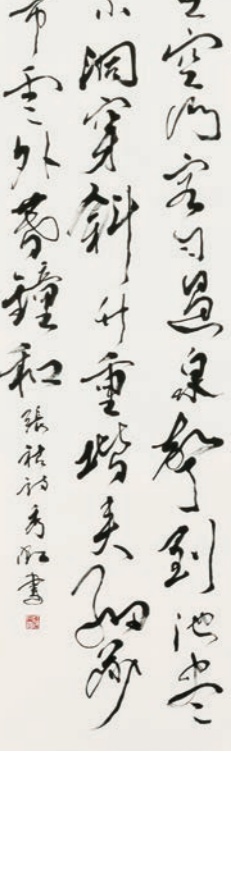 空門客自過泉聲到池盡
小洞穿斜竹重階夾細莎
市雲外暮鐘和
張祜詩秀書